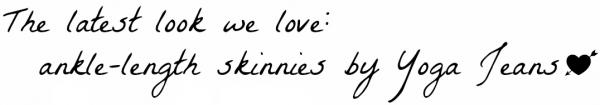 The latest look we love:
ankle-length skinnies by Yoga Jeans